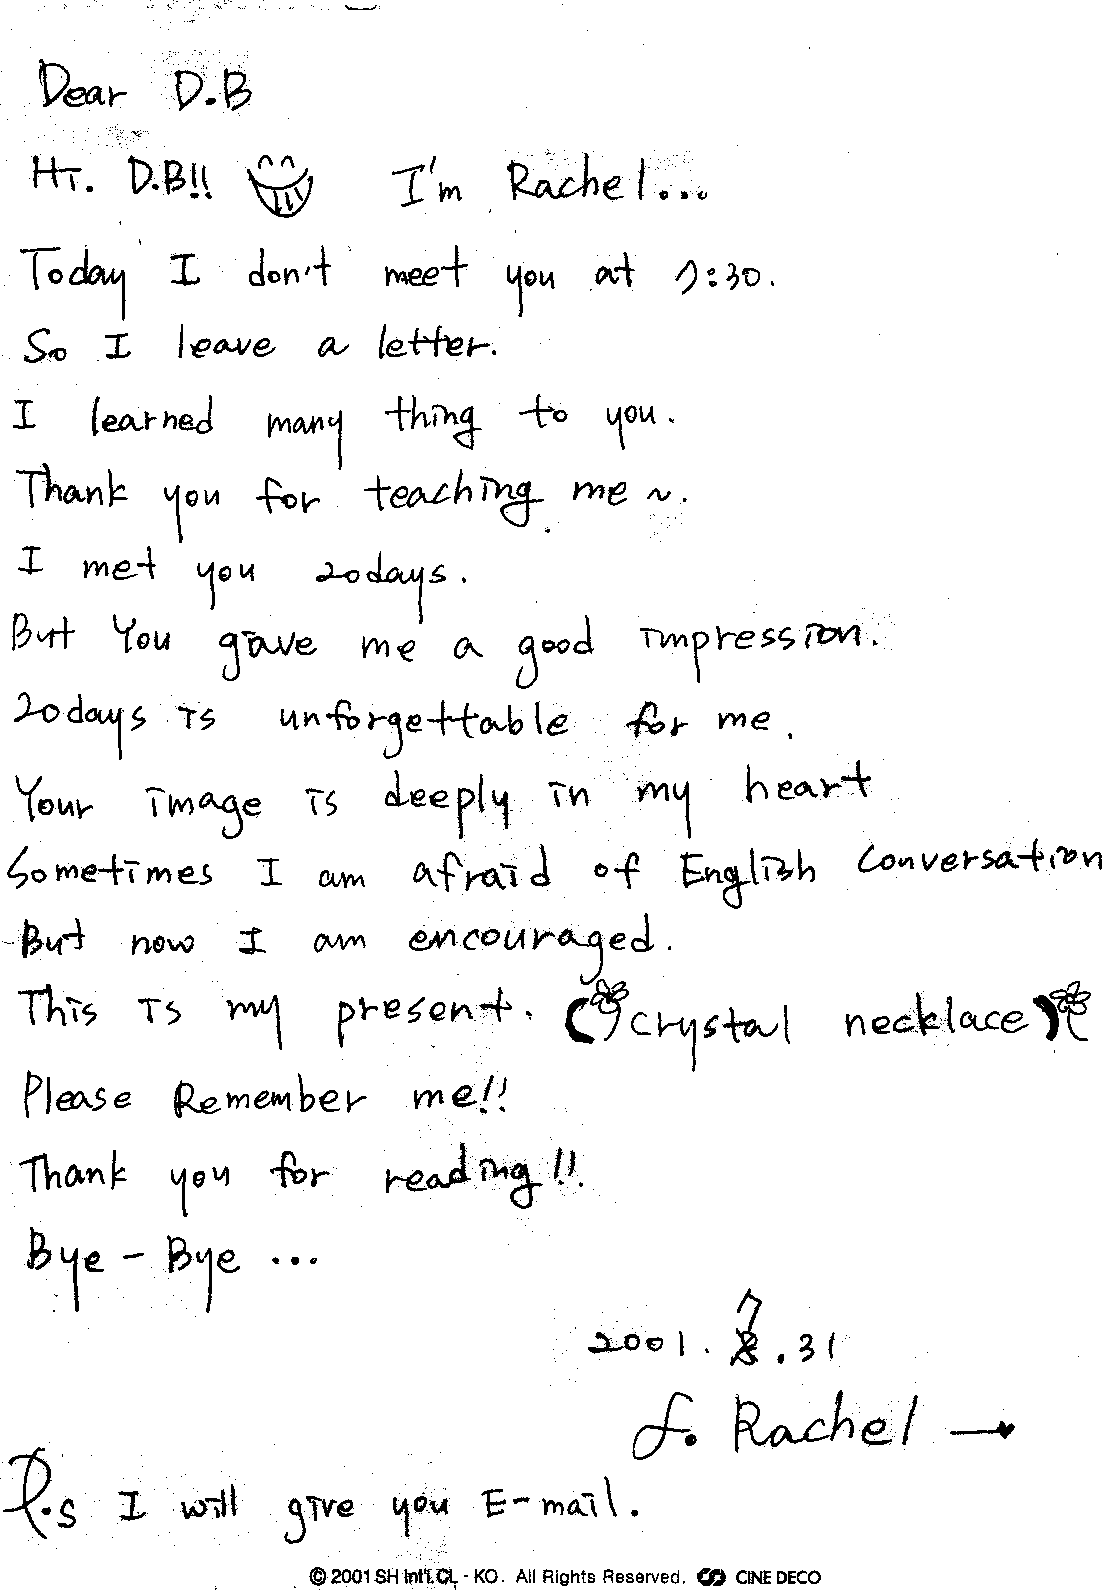 Dear D.B
Hi. D.B!! I'm Rachel...
Today I don't meet you at 7:30.
So I leave a letter.
I learned many thing to you.
Thank you for teaching me ~.
I met you 20days.
But You gave me a good impression.
20days is unforgettable for me.
Your image is deeply in my heart
Sometimes I am afraid of English Conversation
But now I am encouraged.
This is my present. (crystal necklace)
Please Remember me!!
Thank you for reading!!
Bye - Bye ...
2001. 7.31
f. Rachel →
P.s I will give you E-mail.
© 2001 SH Int'l. CL - KO. All Rights Reserved. CINE DECO